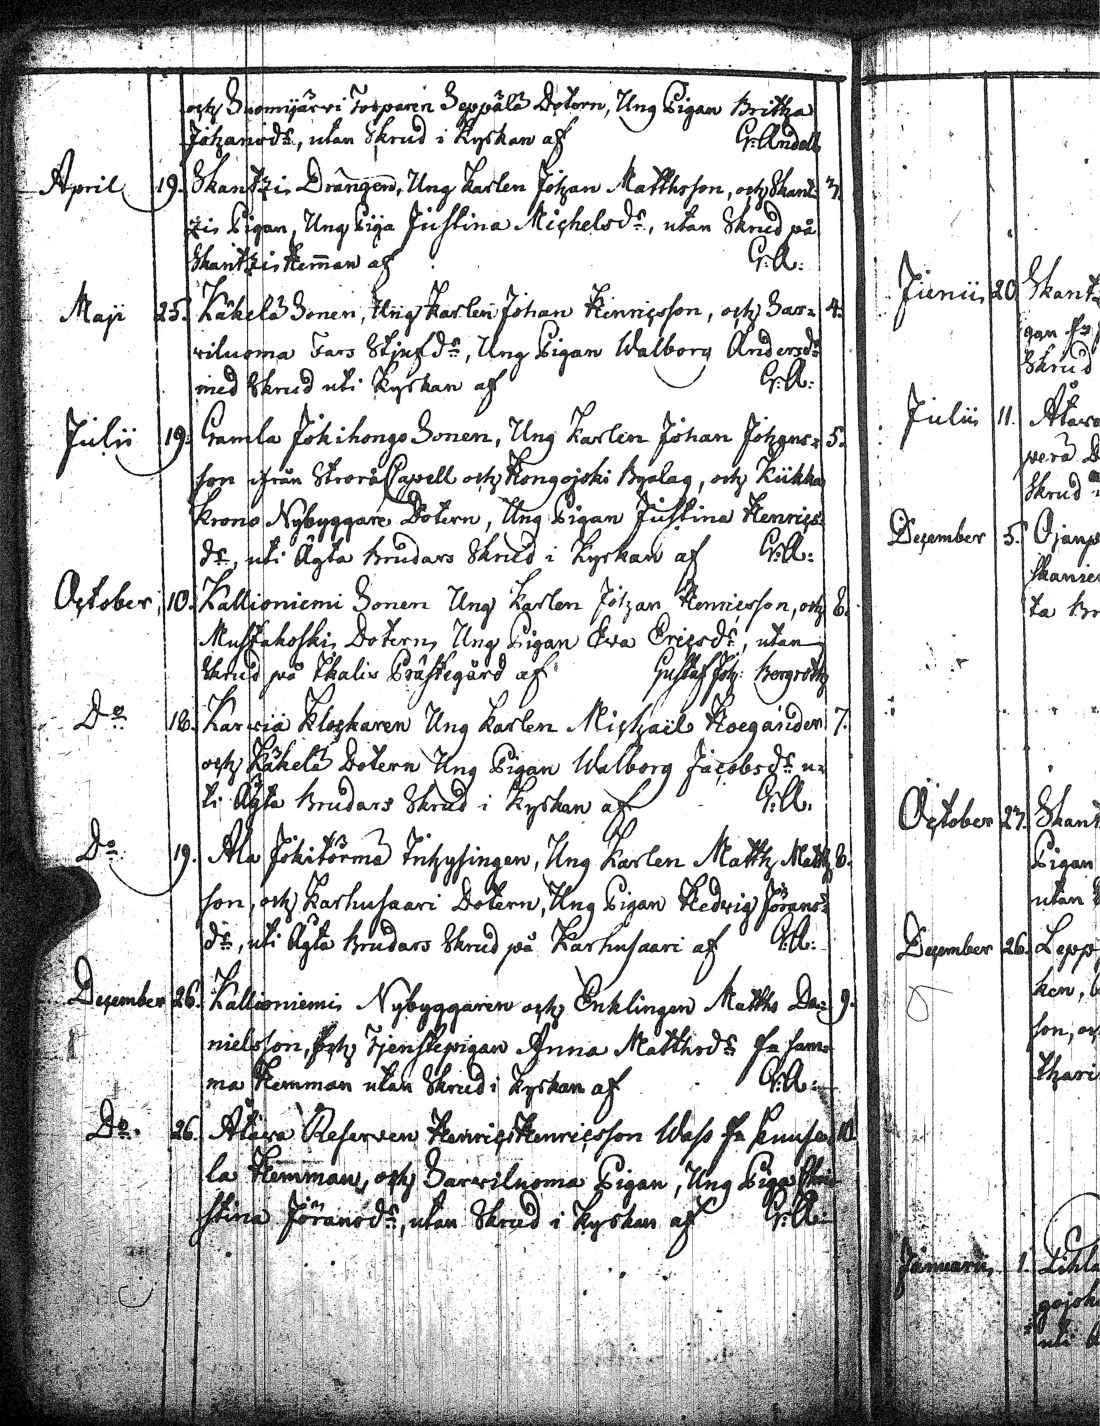 och Suomijärvi Torparen Seppälä Dotern, Ung Pigan Britha
Johansds, utan Skrud i Kyrkan af G: Andell
April 19. Skantzis Drängen, Ung Karlen Johan Matthsson, och Skant- 3.
zis Pigan, Ung Piga Justina Michelsds, utan Skrud på
Skantzis Hemman af G:A:
Maji 25. Käkelä Sonen, Ung Karlen Johan Henricsson, och Sar- 4.
viluoma Fars Stjufds, Ung Pigan Walborg Andersds
med Skrud uti Kyrkan af G:A:
Julii 19. Gamla Jokihongo Sonen, Ung Karlen Johan Johans- 5.
son ifrån Storå Capell och Hongojoki Byalag, och Kiikka
Krono Nybyggare Dotern, Ung Pigan Justina Henrics-
ds, uti Ägta Brudars Skrud i Kyrkan af G:A:
October 10. Kallioniemi Sonen Ung Karlen Johan Henricsson, och 6.
Mustakoskis Dotern, Ung Pigan Eva Ericsds, utan
Skrud på Ikalis Prästegård af Gustaf Joh: Bergroth
Do 18. Karvia Klockaren Ung Karlen Michaël Hoegänder 7.
och Käkelä Dotern Ung Pigan Walborg Jacobsds u-
ti Ägta Brudars Skrud i Kyrkan af G:A:
Do 19. Ala Jokitörmä Inhysingen, Ung Karlen Matth Matth- 8.
son, och Karhusaari Dotern, Ung Pigan Hedvig Jörans-
ds, uti Ägta Brudars Skrud på Karhusaari af G:A:
December 26. Kallioniemis Nybyggaren och Enklingen Matths Da- 9.
nielsson, och Tjenstepigan Anna Matthsds fr sam-
ma Hemman utan Skrud i Kyrkan af G:A:
Do. 26. Alava Reserven Henric Henricsson Wass fr 10.
la Hemman, och Sarviluoma Pigan, Ung Piga Chri-
stina Jöransds, utan Skrud i Kyrkan af G:A:
Junii 20 Skant
gan fr
Skrud
Julii 11.
perä D
Skrud
December 5. Ojanp
ta Br
October 27. Skant
Pigan
utan
December 26. Lepp
ken,
son, oc
Januarii 1.
uti